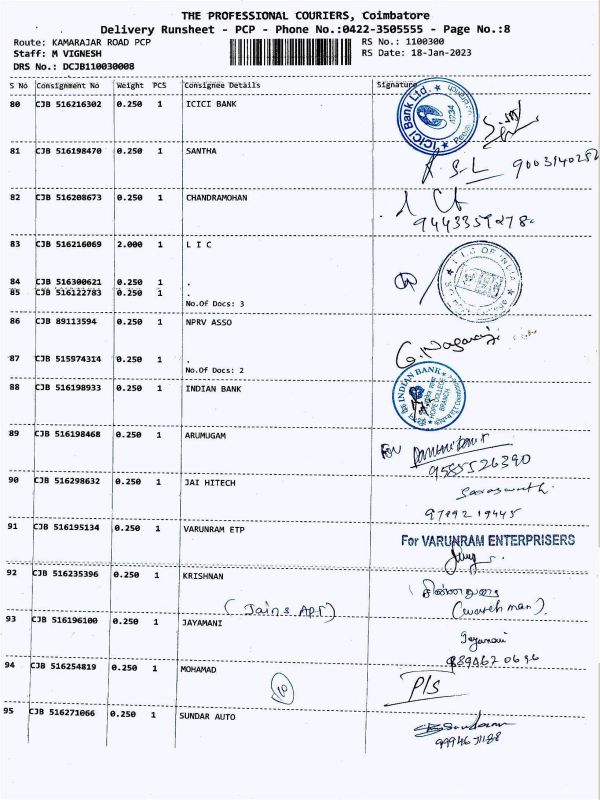 THE PROFESSIONAL COURIERS, Coimbatore
Delivery Runsheet - PCP - Phone No.:0422-3505555 - Page No.:8
Route: KAMARAJAR ROAD PCP RS No.: 1100300
Staff: M VIGNESH RS Date: 18-Jan-2023
DRS No.: DCJB110030008
S No Consignment No Weight PCS Consignee Details Signature
80 CJB 516216302 0.250 1 ICICI BANK
ICICI Bank Ltd.
81 CJB 516198470 0.250 1 SANTHA
9003140282
82 CJB 516208673 0.250 1 CHANDRAMOHAN
83 CJB 516216069 2.000 1 L I C
L I C OF INDIA
84 CJB 516300621 0.250 1 .
85 CJB 516122783 0.250 1 .
No.Of Docs: 3
86 CJB 89113594 0.250 1 NPRV ASSO
G. Nagaraj
87 CJB 515974314 0.250 1 .
No.Of Docs: 2
88 CJB 516198933 0.250 1 INDIAN BANK
INDIAN BANK
COLLEGE
BRANCH
89 CJB 516198468 0.250 1 ARUMUGAM
For
9585526390
90 CJB 516298632 0.250 1 JAI HITECH
Saraswathi
9789219445
91 CJB 516195134 0.250 1 VARUNRAM ETP
For VARUNRAM ENTERPRISERS
92 CJB 516235396 0.250 1 KRISHNAN
(Jains APT)
(watch man).
93 CJB 516196100 0.250 1 JAYAMANI
Jayamani
94 CJB 516254819 0.250 1 MOHAMAD
10
P/s
95 CJB 516271066 0.250 1 SUNDAR AUTO
Sundaram